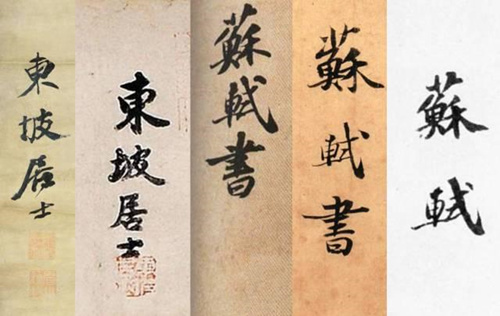 東坡居士
東坡居士
蘇軾書
蘇軾書
蘇軾